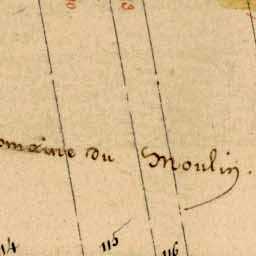 omaine du Moulin.
115
116